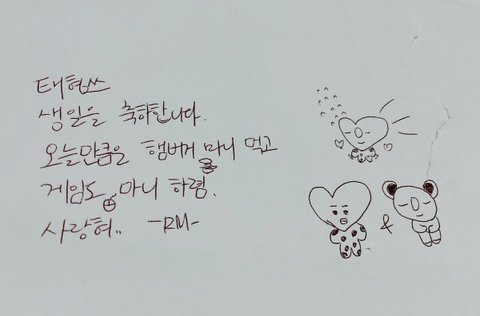 태형쓰
생일을 축하합니다.
오늘만큼은 햄버거 마니 먹고
게임도 마니 하렴.
사랑혀.. -RM-
&